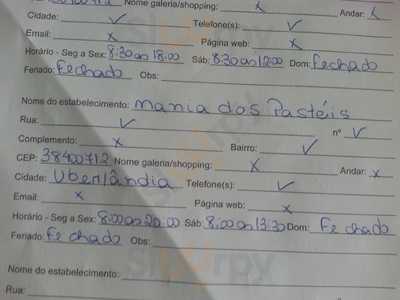 Nome galeria/shopping: x Andar: x
Cidade: ✓ Telefone(s): ✓
Email: x Página web: x
Horário - Seg a Sex: 8:30 as 18:00 Sáb: 8:30 as 12:00 Dom: Fechado
Feriado: Fechado Obs:
Nome do estabelecimento: Mania dos Pastéis
Rua: ✓ nº ✓
Complemento: x Bairro: ✓
CEP: 38400712 Nome galeria/shopping: x Andar: x
Cidade: Uberlândia Telefone(s): ✓
Email: x Página web: x
Horário - Seg a Sex: 8:00 as 20:00 Sáb: 8:00 as 13:30 Dom: Fechado
Feriado: Fechado Obs:
Nome do estabelecimento:
Rua: